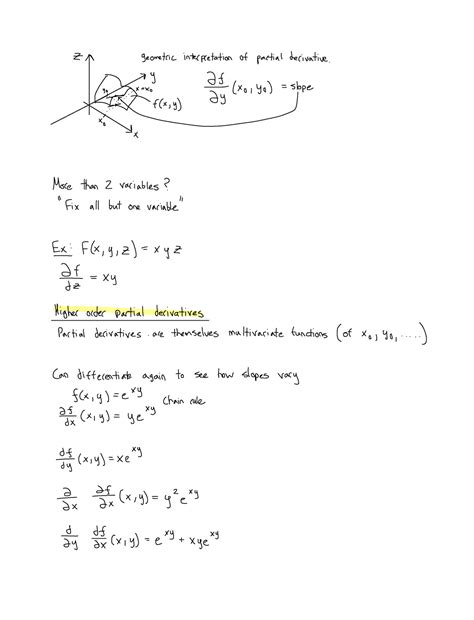 geometric interpretation of partial derivative.
z y x x=x₀ y₀ x₀ f(x,y)
∂f/∂y (x₀, y₀) = slope
More than 2 variables?
"Fix all but one variable"
Ex: F(x,y,z) = xyz
∂f/dz = xy
Higher order partial derivatives
Partial derivatives are themselves multivariate functions (of x₀, y₀, .....)
Can differentiate again to see how slopes vary
f(x,y) = e^xy
chain rule
∂f/dx (x,y) = ye^xy
df/dy (x,y) = xe^xy
∂/∂x ∂f/∂x (x,y) = y²e^xy
d/∂y df/∂x (x,y) = e^xy + xye^xy